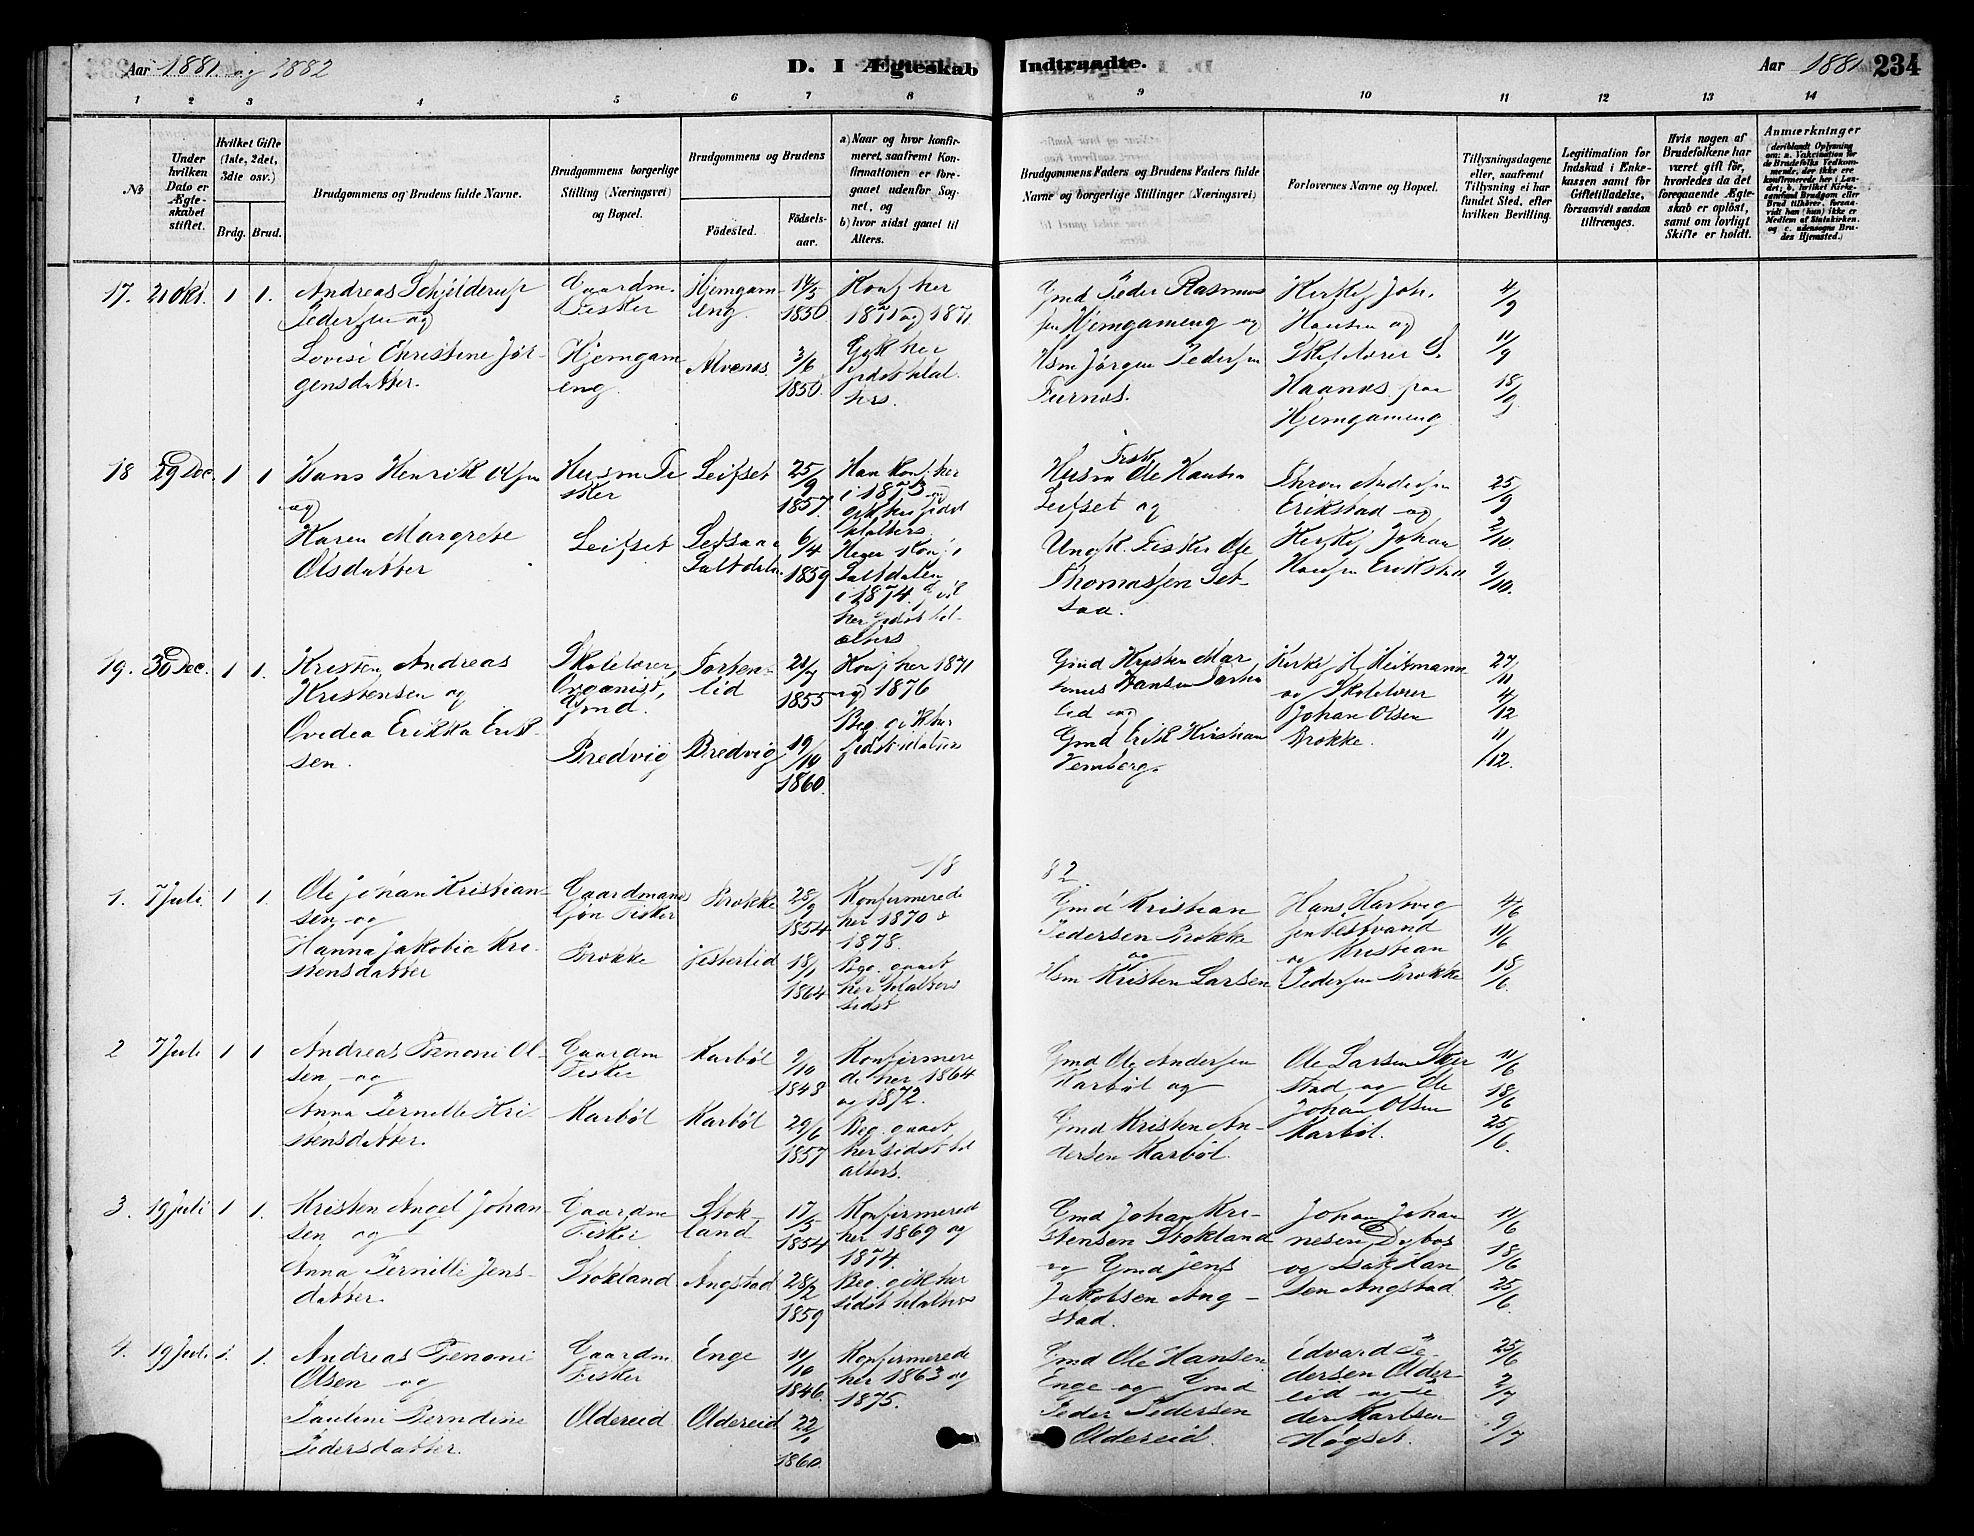 Aar 1881 og 1882
D. I Ægteskab Indtraadte.
Aar 1881
234
1 2 3 4 5 6 7 8 9 10 11 12 13 14
No
Under hvilken Dato er Ægteskabet stiftet.
Hvilket Gifte (1ste, 2det, 3dte osv.)
Brdg. Brud.
Brudgommens og Brudens fulde Navne.
Brudgommens borgerlige Stilling (Næringsvei) og Bopæl.
Brudgommens og Brudens
Födested.
Födselsaar.
a) Naar og hvor konfirmeret, saafremt Konfirmationen er foregaaet udenfor Sognet, og
b) hvor sidst gaaet til Alters.
Brudgommens Faders og Brudens Faders fulde Navne og borgerlige Stillinger (Næringsvei)
Forlovernes Navne og Bopæl.
Tillysningsdagene eller, saafremt Tillysning ei har fundet Sted, efter hvilken Bevilling.
Legitimation for Indskud i Enkekassen samt for Giftetilladelse, forsaavidt saadan tiltrænges.
Hvis nogen af Brudefolkene har været gift för, hvorledes da det foregaaende Ægteskab er oplöst, samt om lovligt Skifte er holdt.
Anmærkninger
(deriblandt Oplysning om: a. Vaksination for de Brudefolks Vedkommende, der ikke ere konfirmerede her i Landet; b. hvilket Kirkesamfund Brudgom eller Brud tilhörer, forsaavidt han (hun) ikke er Medlem af Statskirken, og c. udensogns Brudes Hjemsted.)
17. 21 Okt. 1 1.
Andreas Schjelderup
Pedersen og
Lovise Christine Jør-
gensdatter.
Gaardm.
Fisker
Hjemgam
eng.
Hjemgam
eng.
Alvenes
14/3
1850
3/6
1850.
Konf her
1871 og 1871
Gik her
sidst til al.
ters.
Gmd Peder Rasmus
sen Hjemgameng og
Hsm Jørgen Pedersen
Furnes.
Kirkes. Joh.
Hansen og
Skolelærer
Haanes paa
Hjemgameng
4/9
11/9
18/9
18 29 Dec. 1 1
Hans Henrik Olsen
og
Karen Margrete
Olsdatter
Husm Fi
sker
Leifset
Leifset
Setsaa
Saltdalen
25/9
1857.
6/4
1859
Han konf. her
i 1873 og
gik her sidst
til alters.
Konf. i
Saltdalen
i 1874.
her sidst til
alters
Husm Fisk Ole Hansen
Leifset og
Ungk. Fisker Ole
Thomassen Set-
saa.
Thron Andersen
Erikstad og
Kirkes. Johan
Hansen Erikstad
25/9
2/10
9/10.
19. 30 Dec. 1 1.
Kristen Andreas
Kristensen og
Ovedea Erikka Erik-
sen.
Skolelærer,
Organist,
Gmd.
Bredvig
Torten-
lid
Bredvig
21/7
1855
19/10
1860.
Konf her 1871
og 1876
Beg. gik her
sidst til alters
Gmd Kristen Mar
Hansen
lid og
Gmd Erik Kristian
Vemberg.
Kirkes. M. Heitmann
og Skolelærer
Johan Olsen
Brokke.
27/11
4/12
11/12.
1882
1. 7 Juli. 1 1.
Ole Johan Kristian-
sen og
Hanna Jakobia Kri-
stensdatter
Gaardmands
søn Fisker
Brokke
Brokke
Vesterlid
28/9
1854
18/1
1864
Konfirmerede
her 1870 &
1878.
Beg. gaaet
her til alters
sidst
Gmd Kristian
Pedersen Brokke
og
Hsm Kristen Larsen
Hans Hartvig
og Kristian
Pedersen Brokke
4/6
11/6
18/6
2 7 Juli 1 1
Andreas Benoni Ol-
sen og
Anna Pernille Kri
stensdatter.
Gaardm
Fisker
Karbøl
Karbøl
Karbøl
9/10
1848
29/6
1857
Konfirmere
de her 1864
og 1872.
Beg. gaaet
her sidst til
alters.
Gmd Ole Andersen
Karbøl og
Gmd Kristen An-
dersen Karbøl.
Ole Larsen Skjer
stad og Ole
Johan Olsen
Karbøl.
11/6
18/6
25/6.
3. 19 Juli 1 1.
Kristen Angel Johan-
sen og
Anna Pernille Jens-
datter.
Gaardm
Fisker
Stokland
Stok-
land
Angstad
17/3
1854
28/2
1859
Konfirmerede
her 1869 og
1874.
Beg. gik her
sidst til alters
Gmd Johan Kri-
stensen Stokland
og Gmd Jens
Jakobsen Ang-
stad.
Johan Johan
nesen Dybos
og Isak Han
sen Angstad
11/6
18/6
25/6
4. 19 Juli 1. 1.
Andreas Benoni
Olsen og
Pauline Berndine
Pedersdatter.
Gaardm.
Fisker
Oldereid
Enge
Oldereid
11/10
1846.
22/1
1860.
Konfirmerede
her 1863 og
1875.
Gmd Ole Hansen
Enge og Gmd
Peder Pedersen
Oldereid.
Edvard Pe-
dersen Older
eid og Pe
der Karlsen
Høgset.
25/6
2/7
9/7